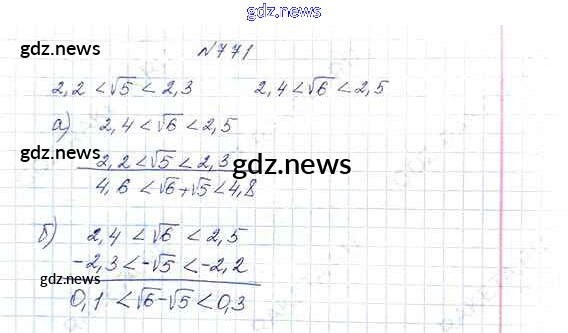 gdz.news
gdz.news
№771
2,2 < √5 < 2,3 2,4 < √6 < 2,5
а) 2,4 < √6 < 2,5
gdz.news
2,2 < √5 < 2,3
gdz.news
4,6 < √6 + √5 < 4,8
б) 2,4 < √6 < 2,5
-2,3 < -√5 < -2,2
gdz.news
0,1 < √6 - √5 < 0,3